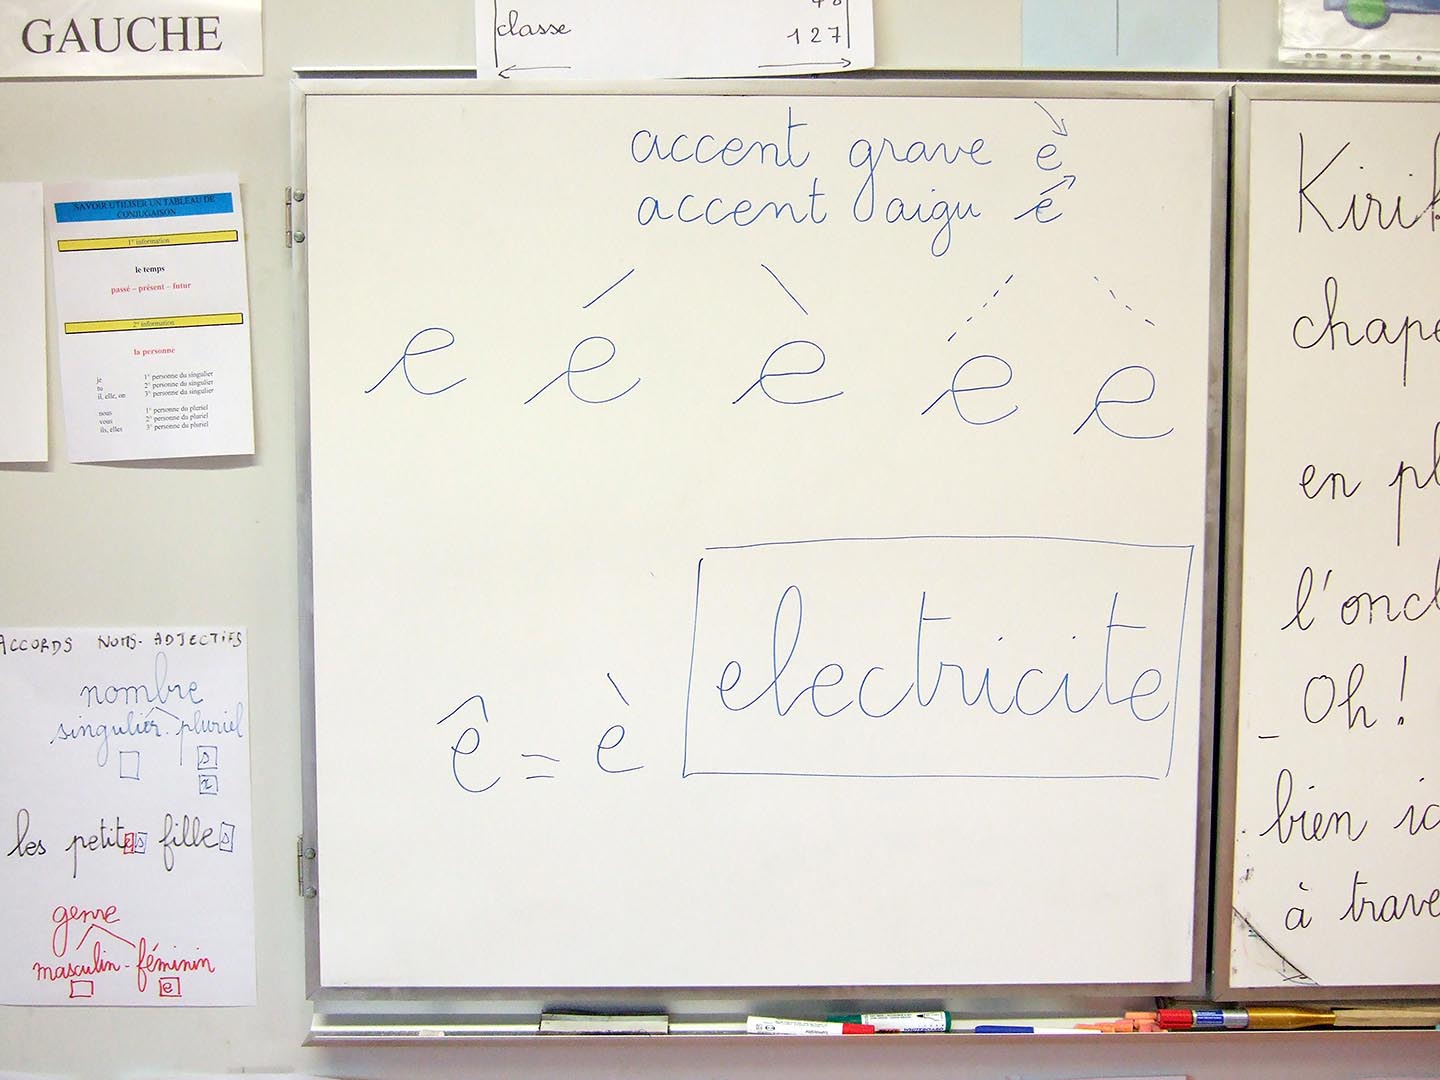 GAUCHE
classe
127
SAVOIR UTILISER UN TABLEAU DE
CONJUGAISON
1° information
le temps
passé – présent – futur
2° information
la personne
je 1° personne du singulier
tu 2° personne du singulier
il, elle, on 3° personne du singulier
nous 1° personne du pluriel
vous 2° personne du pluriel
ils, elles 3° personne du pluriel
ACCORDS NOMS-ADJECTIFS
nombre
singulier - pluriel
s
x
les petites filles
genre
masculin - féminin
e
accent grave è
accent aigu é
e é è é è
ê = è
electricite
en
l'
Oh!
bien
à